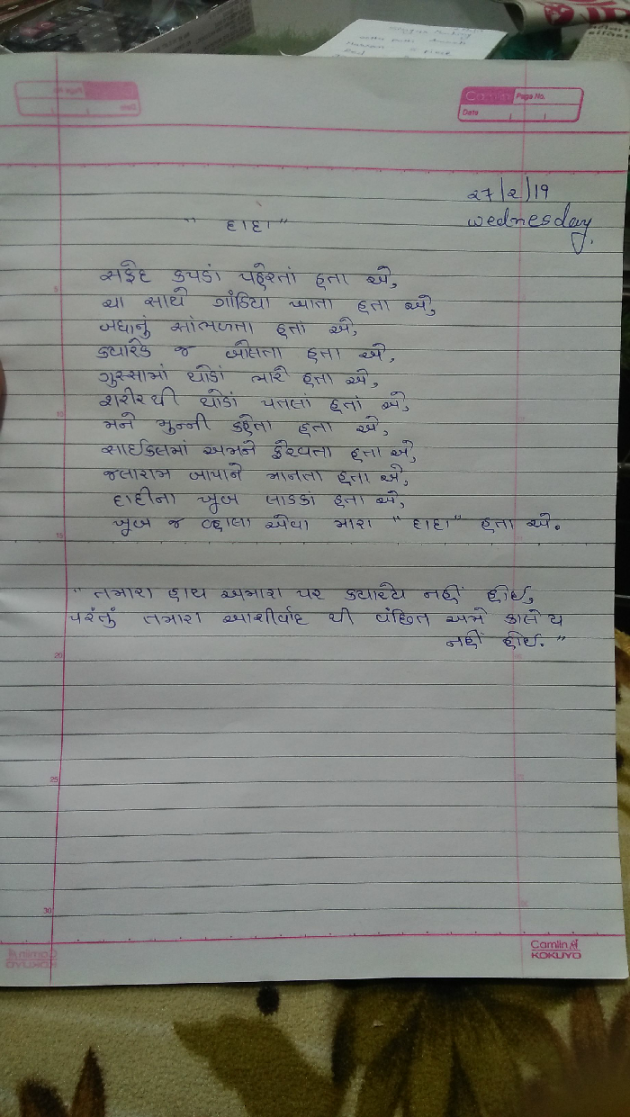 Camlin Page No.
Date
27/2/19
wednesday.
" દાદા "
સફેદ કપડાં પહેરતાં હતા એ,
ચા સાથે ગાંઠિયા ખાતા હતા એ,
બધાનું સાંભળતા હતાં એ,
ક્યારેક જ બોલતા હતા એ,
ગુસ્સામાં થોડાં ભારે હતા એ,
શરીરથી થોડાં પતલાં હતાં એ,
મને મુન્ની કહેતા હતા એ,
સાઈકલમાં અમને ફેરવતા હતા એ,
જલારામ બાપાને માનતા હતા એ,
દાદીના ખુબ લાડકાં હતા એ,
ખુબ જ વ્હાલા એવા મારા " દાદા " હતા એ.
" તમારા હાથ અમારા પર ક્યારેય નહીં હોઈ,
પરંતું તમારા આશીર્વાદ થી વંછિત અમે કાલે ય
નહીં હોઈ. "
5
10
15
20
25
30
Camlin
KOKUYO